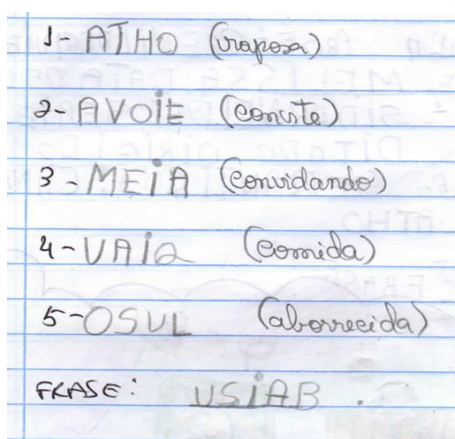 1- ATHO (raposa)
2- AVOIE (convite)
3 - MEIA (convidando)
4 - VAIQ (comida)
5- OSUL (aborrecida)
FRASE: USIAB .